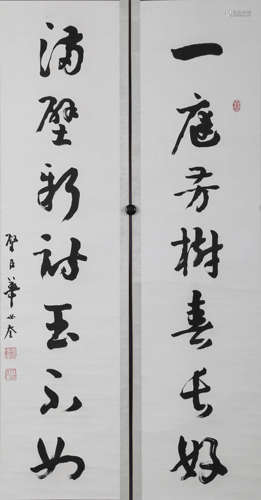 一庭芳樹春長好
滿壁新詩玉不如
華世奎